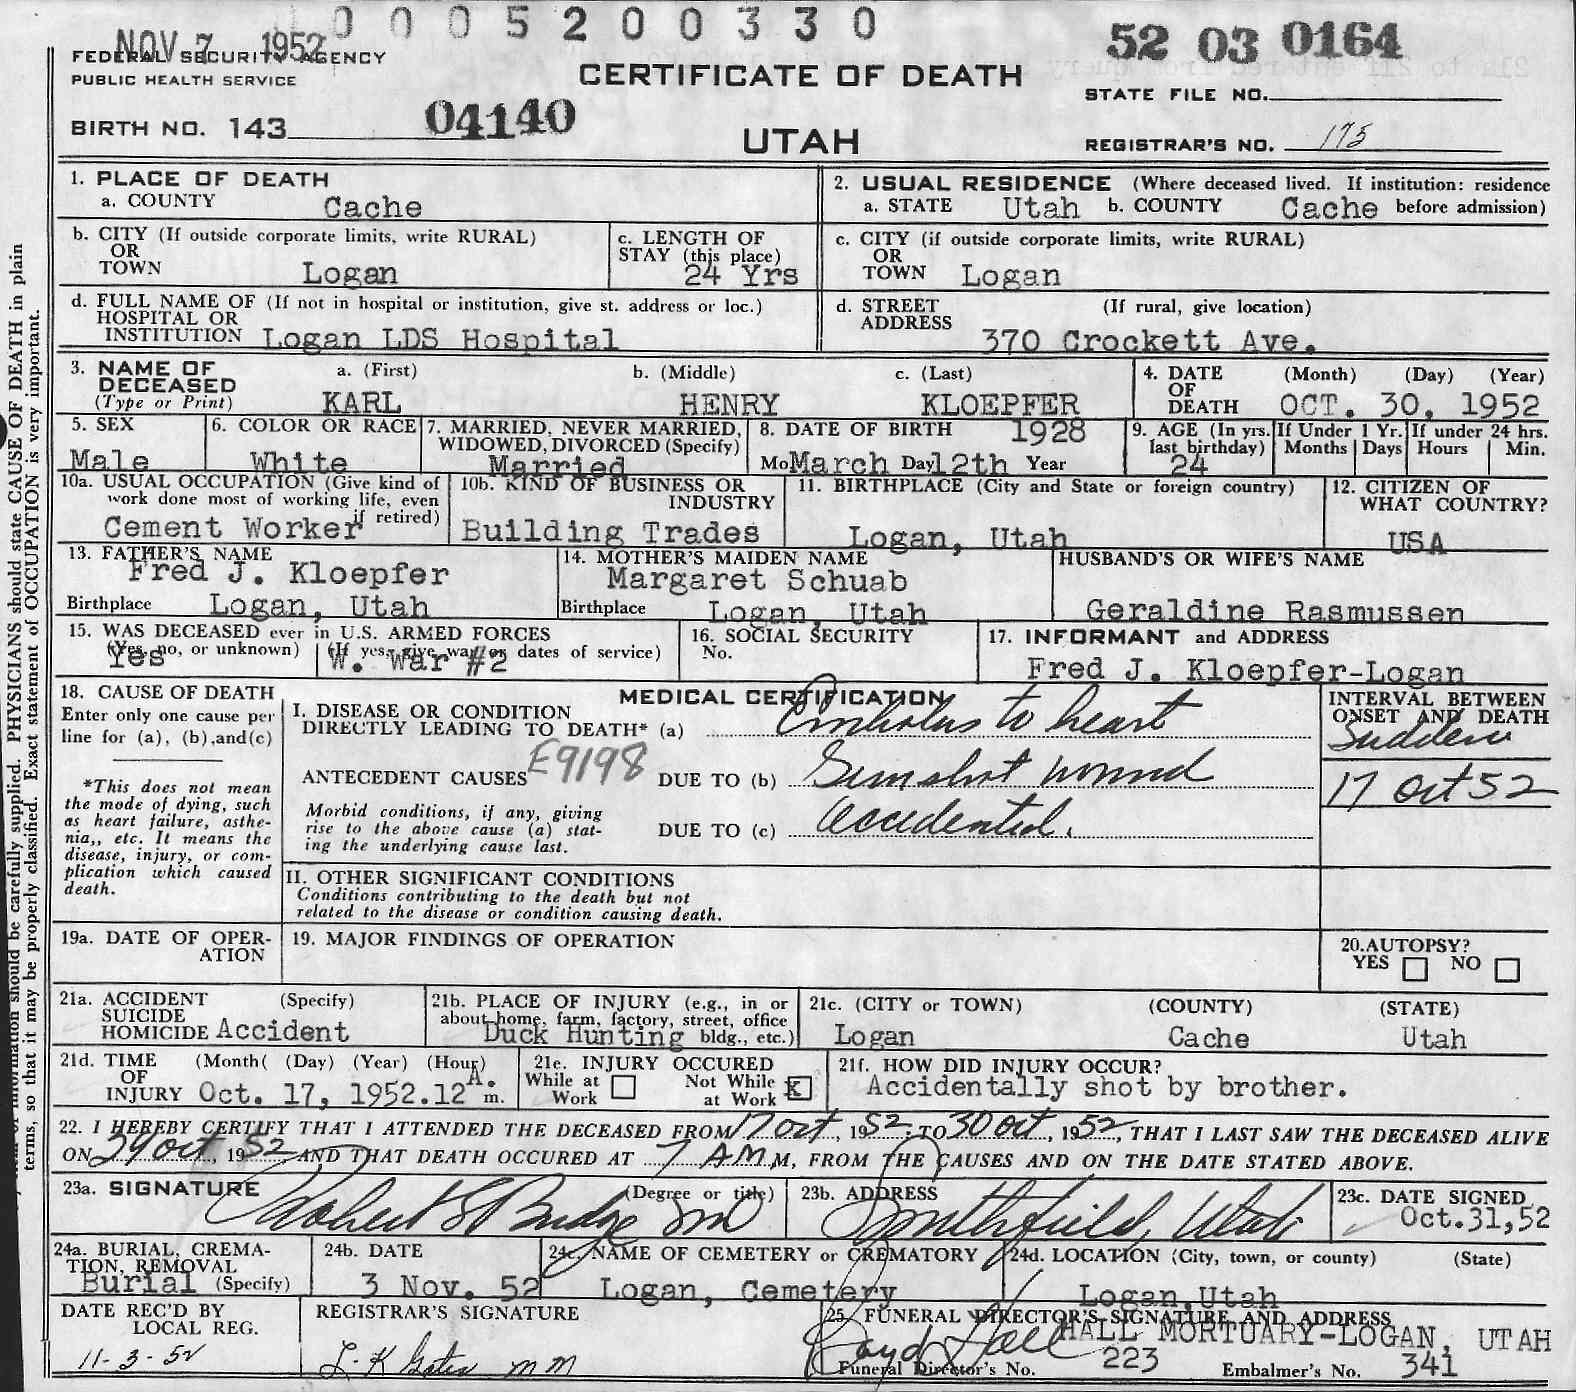 0 0 0 5 2 0 0 3 3 0
NOV 7 1952
52 03 0164
FEDERAL SECURITY AGENCY
PUBLIC HEALTH SERVICE
CERTIFICATE OF DEATH
STATE FILE NO.
BIRTH NO. 143 04140
UTAH
REGISTRAR'S NO. 175
1. PLACE OF DEATH
a. COUNTY Cache
2. USUAL RESIDENCE (Where deceased lived. If institution: residence
a. STATE Utah b. COUNTY Cache before admission)
b. CITY (If outside corporate limits, write RURAL)
OR
TOWN Logan
c. LENGTH OF
STAY (this place)
24 Yrs
c. CITY (if outside corporate limits, write RURAL)
OR
TOWN Logan
d. FULL NAME OF (If not in hospital or institution, give st. address or loc.)
HOSPITAL OR
INSTITUTION Logan LDS Hospital
d. STREET (If rural, give location)
ADDRESS
370 Crockett Ave.
3. NAME OF
DECEASED
(Type or Print)
a. (First) b. (Middle) c. (Last)
KARL HENRY KLOEPFER
4. DATE (Month) (Day) (Year)
OF
DEATH OCT. 30, 1952
5. SEX
Male
6. COLOR OR RACE
White
7. MARRIED, NEVER MARRIED,
WIDOWED, DIVORCED (Specify)
Married
8. DATE OF BIRTH 1928
Mo March Day 12th Year
9. AGE (In yrs.
last birthday)
24
If Under 1 Yr.
Months Days
If under 24 hrs.
Hours Min.
10a. USUAL OCCUPATION (Give kind of
work done most of working life, even
if retired)
Cement Worker
10b. KIND OF BUSINESS OR
INDUSTRY
Building Trades
11. BIRTHPLACE (City and State or foreign country)
Logan, Utah
12. CITIZEN OF
WHAT COUNTRY?
USA
13. FATHER'S NAME
Fred J. Kloepfer
Birthplace Logan, Utah
14. MOTHER'S MAIDEN NAME
Margaret Schuab
Birthplace Logan, Utah
HUSBAND'S OR WIFE'S NAME
Geraldine Rasmussen
15. WAS DECEASED ever in U.S. ARMED FORCES
(Yes, no, or unknown) (If yes, give war or dates of service)
Yes W. War #2
16. SOCIAL SECURITY
No.
17. INFORMANT and ADDRESS
Fred J. Kloepfer-Logan
18. CAUSE OF DEATH
Enter only one cause per
line for (a), (b), and (c)
*This does not mean
the mode of dying, such
as heart failure, asthe-
nia,, etc. It means the
disease, injury, or com-
plication which caused
death.
MEDICAL CERTIFICATION
I. DISEASE OR CONDITION
DIRECTLY LEADING TO DEATH* (a) Embolus to heart
ANTECEDENT CAUSES E9198 DUE TO (b) Gunshot wound
Morbid conditions, if any, giving
rise to the above cause (a) stat-
ing the underlying cause last.
DUE TO (c) accidental.
INTERVAL BETWEEN
ONSET AND DEATH
Sudden
17 Oct 52
II. OTHER SIGNIFICANT CONDITIONS
Conditions contributing to the death but not
related to the disease or condition causing death.
19a. DATE OF OPER-
ATION
19. MAJOR FINDINGS OF OPERATION
20. AUTOPSY?
YES NO
21a. ACCIDENT (Specify)
SUICIDE
HOMICIDE Accident
21b. PLACE OF INJURY (e.g., in or
about home, farm, factory, street, office
bldg., etc.)
Duck Hunting
21c. (CITY or TOWN) (COUNTY) (STATE)
Logan Cache Utah
21d. TIME (Month( (Day) (Year) (Hour)
OF
INJURY Oct. 17, 1952. 12 A. m.
21e. INJURY OCCURED
While at Work Not While at Work X
21f. HOW DID INJURY OCCUR?
Accidentally shot by brother.
22. I HEREBY CERTIFY THAT I ATTENDED THE DECEASED FROM 17 Oct, 1952, TO 30 Oct, 1952, THAT I LAST SAW THE DECEASED ALIVE
ON 29 Oct, 1952, AND THAT DEATH OCCURED AT 7 AM M, FROM THE CAUSES AND ON THE DATE STATED ABOVE.
23a. SIGNATURE (Degree or title)
Robert S Budge MD
23b. ADDRESS
Smithfield, Utah
23c. DATE SIGNED
Oct.31,52
24a. BURIAL, CREMA-
TION, REMOVAL
Burial (Specify)
24b. DATE
3 Nov. 52
24c. NAME OF CEMETERY or CREMATORY
Logan, Cemetery
24d. LOCATION (City, town, or county) (State)
Logan, Utah
DATE REC'D BY
LOCAL REG.
11-3-52
REGISTRAR'S SIGNATURE
25. FUNERAL DIRECTOR'S SIGNATURE AND ADDRESS
Boyd Hall HALL MORTUARY-LOGAN, UTAH
Funeral Director's No. 223 Embalmer's No. 341
information should be carefully supplied. PHYSICIANS should state CAUSE OF DEATH in plain
terms, so that it may be properly classified. Exact statement of OCCUPATION is very important.